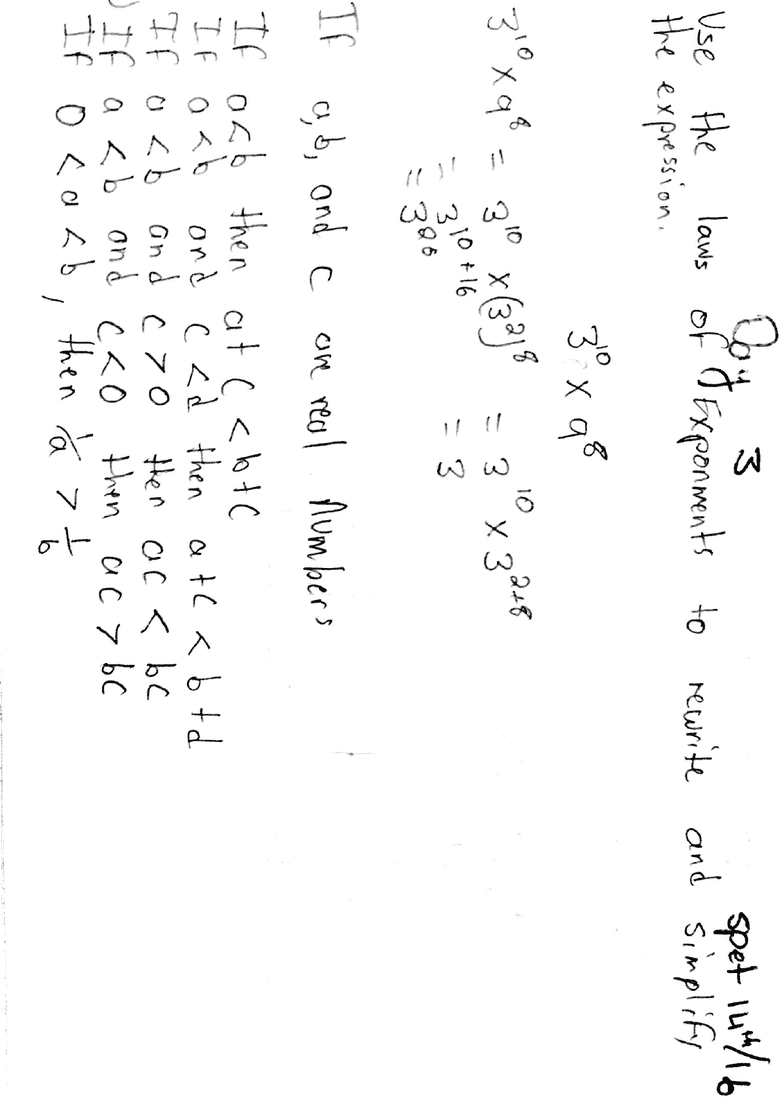 Day 3 spet 14th/16
Use the laws of Exponments to rewrite and simplify
the expression.
3^10 × 9^8
3^10 × 9^8 = 3^10 × (3^2)^8 = 3^10 × 3^2+8
= 3^10+16 = 3
= 3^26
If a,b, and c are real numbers
If a<b then a+c < b+c
If a<b and c<d then a+c < b+d
If a<b and c>0 then ac < bc
If a<b and c<0 then ac > bc
If 0<a<b, then 1/a > 1/b